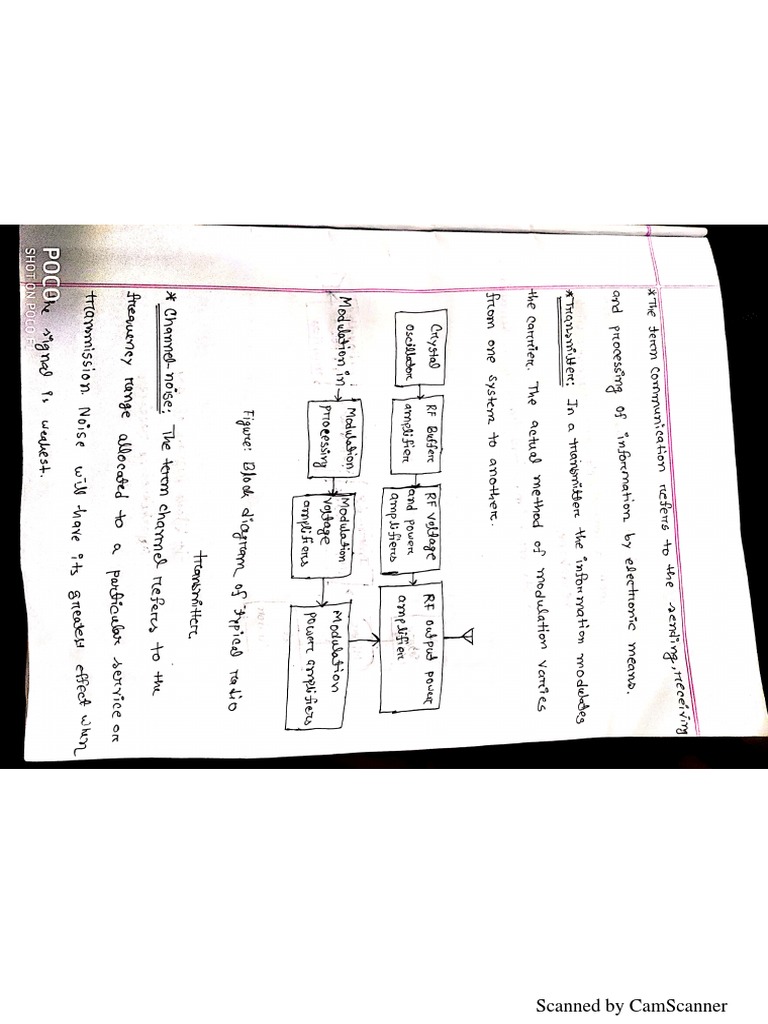 * The term communication refers to the sending, receiving
and processing of information by electronic means.
* Transmitter: In a transmitter the information modulates
the carrier. The actual method of modulation varies
from one system to another.
Crystal
oscillator
RF Buffer
amplifier
RF voltage
and power
amplifiers
RF output power
amplifier
Modulation in
Modulation
processing
Modulation
voltage
amplifiers
Modulation
power amplifiers
Figure: Block diagram of typical radio
transmitter
* Channel noise: The term channel refers to the
frequency range allocated to a particular service or
transmission. Noise will have its greatest effect when
signal is weakest.
POCO
SHOT ON POCO
Scanned by CamScanner